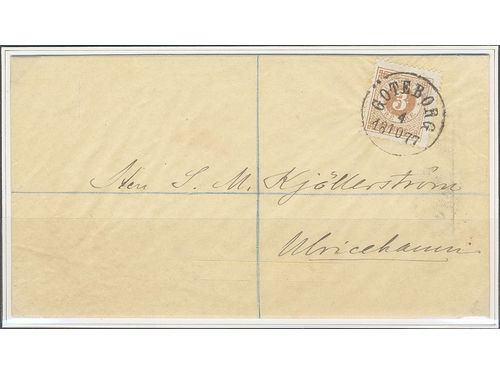 GÖTEBORG
4
18 10 77
3
Herr S. M. Kjöllerström
Ulricehamn